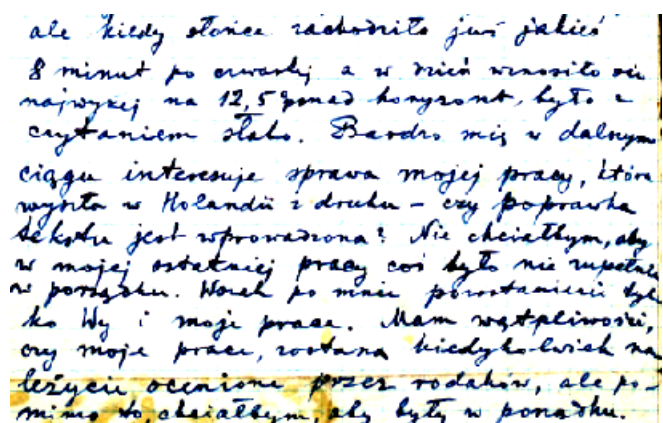 ale kiedy słońce zachodziło już jakieś
8 minut po czwartej a w dzień wznosiło się
najwyżej na 12,5 ponad horyzont, było z
czytaniem słabo. Bardzo mię w dalszym
ciągu interesuje sprawa mojej pracy, która
wyszła w Holandii z druku – czy poprawka
tekstu jest wprowadzona? Nie chciałbym, aby
w mojej ostatniej pracy coś było nie zupełnie
w porządku. Wszak po mnie pozostaniecie tyl-
ko Wy i moje prace. Mam wątpliwości,
czy moje prace, zostaną kiedykolwiek na-
leżycie ocenione przez rodaków, ale po-
mimo to, chciałbym, aby były w porządku.